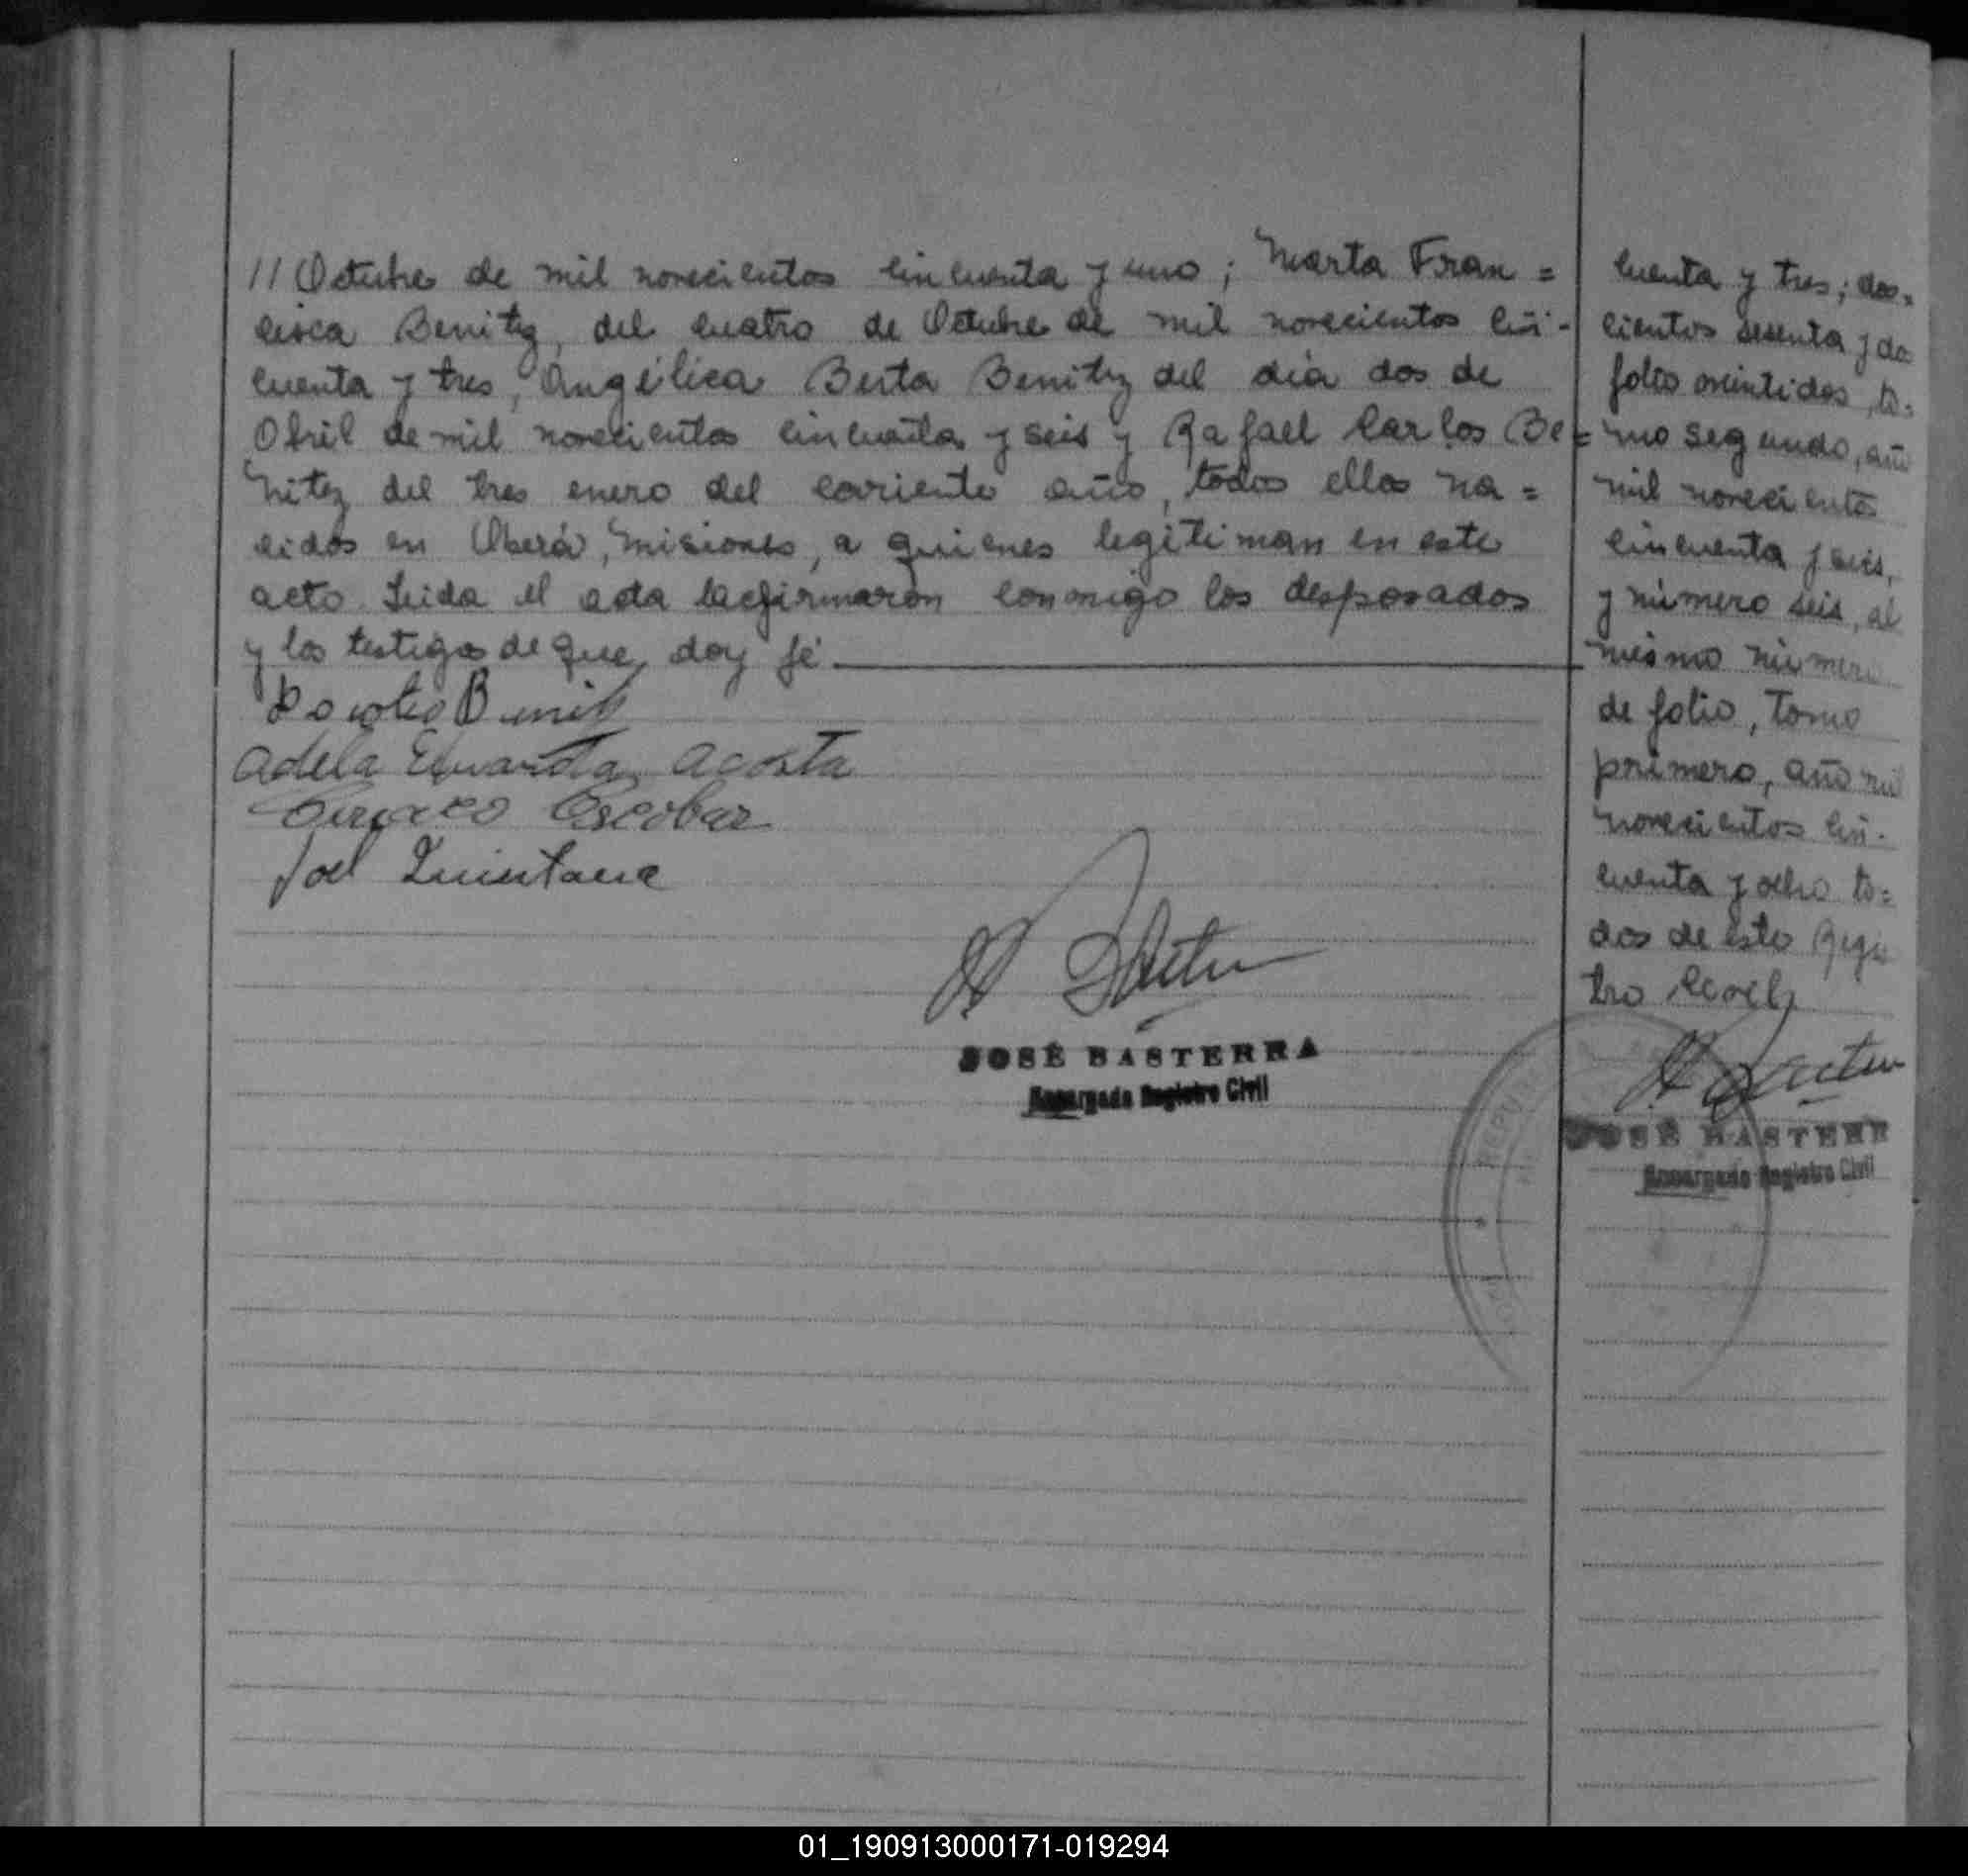 // Octubre de mil novecientos cincuenta y uno; Marta Fran=
cisca Benitez, del cuatro de Octubre de mil novecientos cin-
cuenta y tres, Angélica Berta Benitez del día dos de
Abril de mil novecientos cincuenta y seis y Rafael Carlos Be=
nitez del tres enero del corriente año, todos ellos na=
cidos en Oberá, Misiones, a quienes legitiman en este
acto. Leida el acta la firmaron conmigo los desposados
y los testigos de que doy fé
Adela Eduarda Acosta
Ciriaco Escobar
Joel Quintana
JOSÉ BASTERRA
Encargado Registro Civil
cuenta y tres; dos=
cientos sesenta y dos
folio veintidos, to=
mo segundo, año
mil novecientos
cincuenta y seis,
y número seis, al
mismo número
de folio, Tomo
primero, año mil
novecientos cin-
cuenta y ocho to=
dos de este Regis
tro Civil
JOSÉ BASTERR
Encargado Registro Civil
REPU
01_190913000171-019294